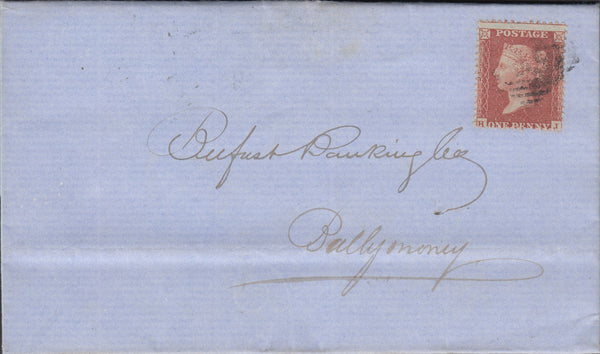 POSTAGE
H ONE PENNY J
Belfast Banking Co
Ballymoney